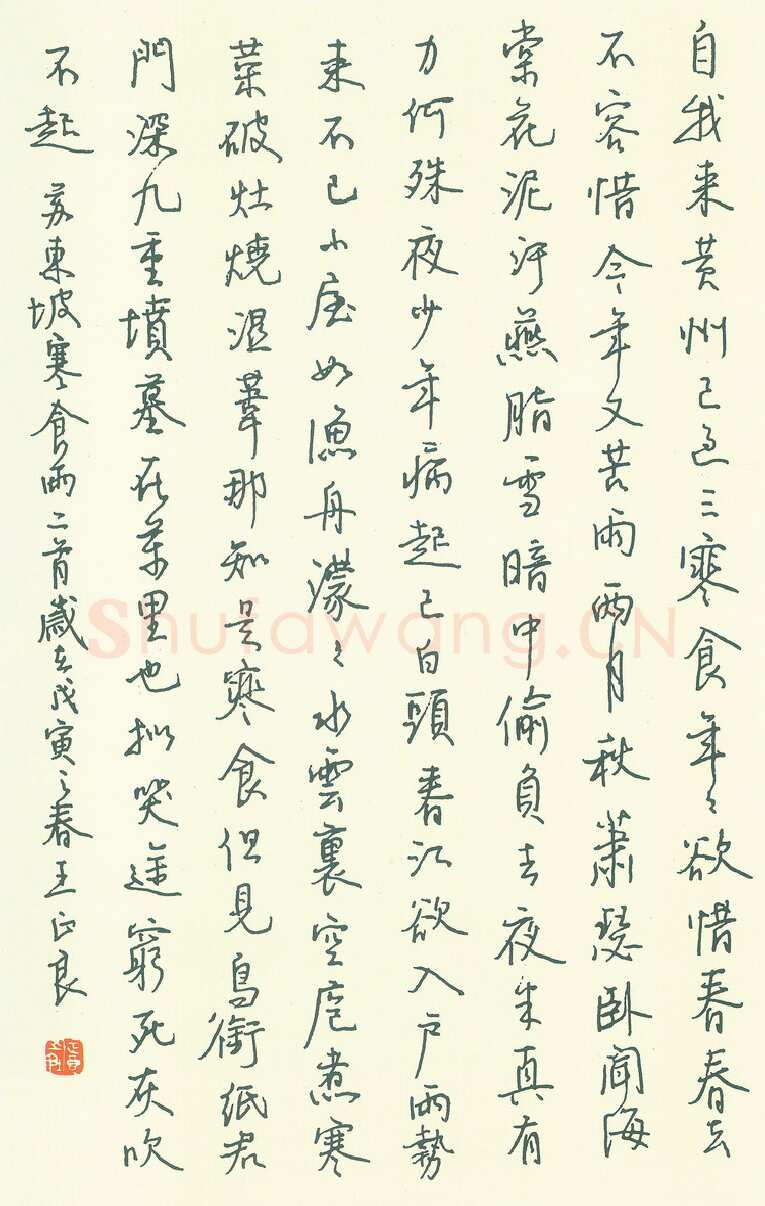 自我来黄州已过三寒食年々欲惜春春去
不容惜今年又苦雨兩月秋蕭瑟卧聞海
棠花泥汙燕脂雪暗中偷負去夜半真有
力何殊夜少年病起已白頭春江欲入户雨勢
来不已小屋如漁舟濛々水雲裏空庖煮寒
菜破灶燒濕葦那知是寒食但見烏銜纸君
門深九重墳墓在萬里也拟哭途窮死灰吹
不起 苏東坡寒食雨二首歲在戊寅之春王正良
Shufawang.CN